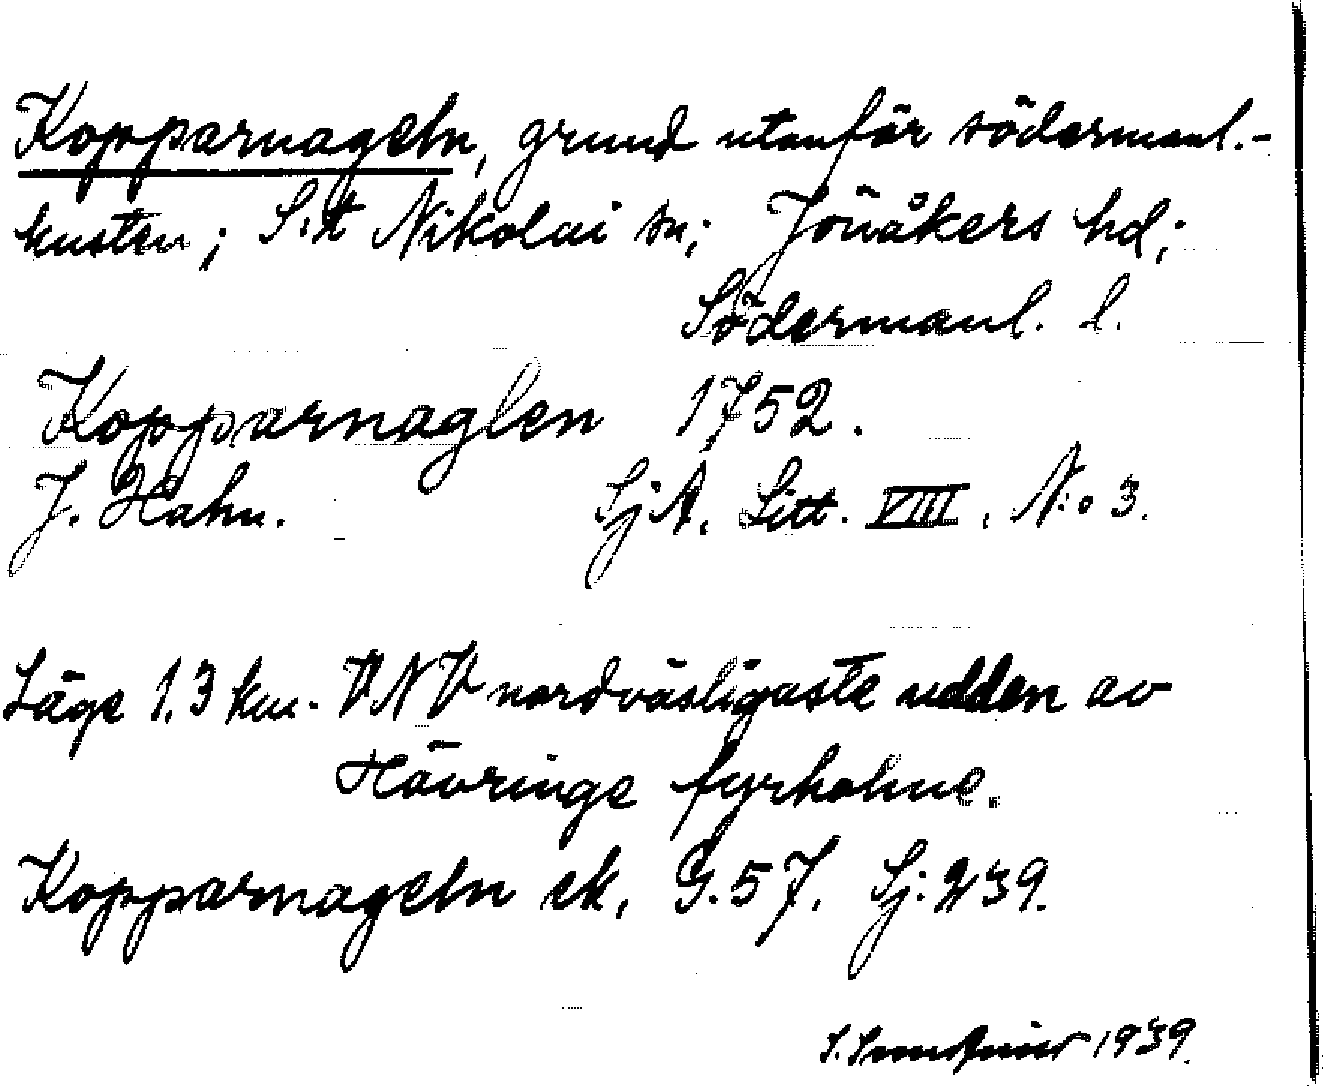 Kopparnageln, grund utanför södermanl.-
kusten; S:t Nikolai sn; Jönåkers hd;
Södermanl. l.
Kopparnaglen 1752.
J. Hahn. SjA. Litt. VIII. N:o 3.
Läge 1.3 km. VNV nordväsligaste udden av
Hävringe fyrholme.
Kopparnageln ek. G.57. Sj:239.
1939.